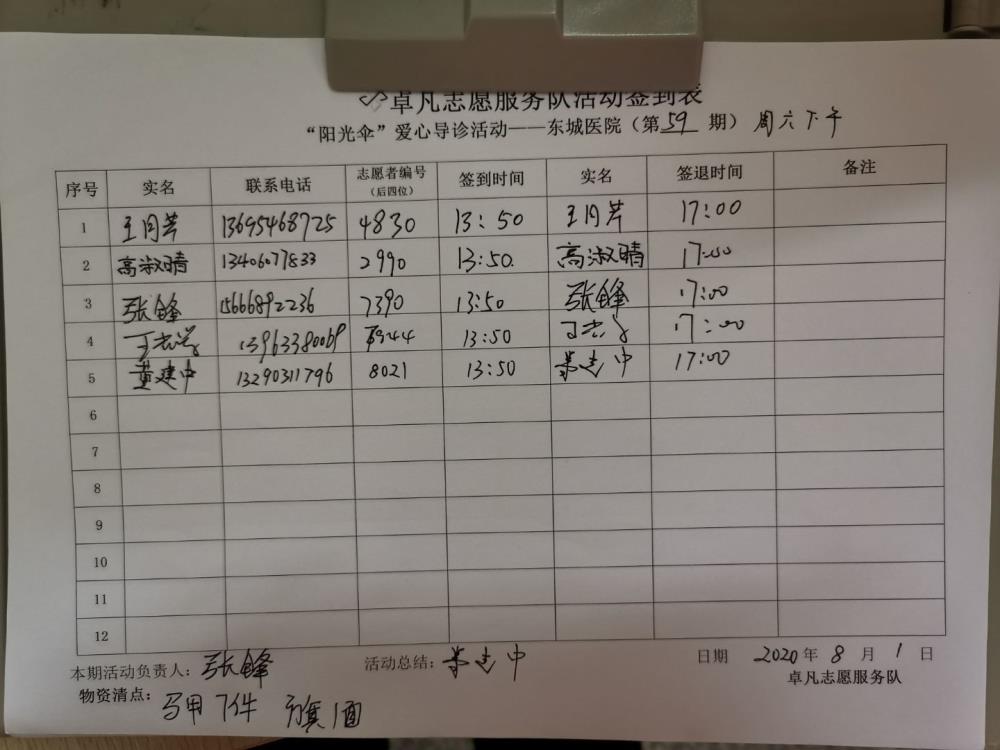 卓凡志愿服务队活动签到表
“阳光伞”爱心导诊活动——东城医院（第59期）周六下午
序号 实名 联系电话 志愿者编号（后四位） 签到时间 实名 签退时间 备注
1 王月芹 13695468725 4830 13:50 王月芹 17:00
2 高淑晴 13406077833 2990 13:50. 高淑晴 17:00
3 张锋 15666892236 7390 13:50 张锋 17:00
4 13963380069 13:50 17:00
5 黄建中 13290311796 8021 13:50 黄建中 17:00
6
7
8
9
10
11
12
本期活动负责人：张锋 活动总结：黄建中 日期 2020年8月1日
物资清点：马甲7件 旗1面 卓凡志愿服务队